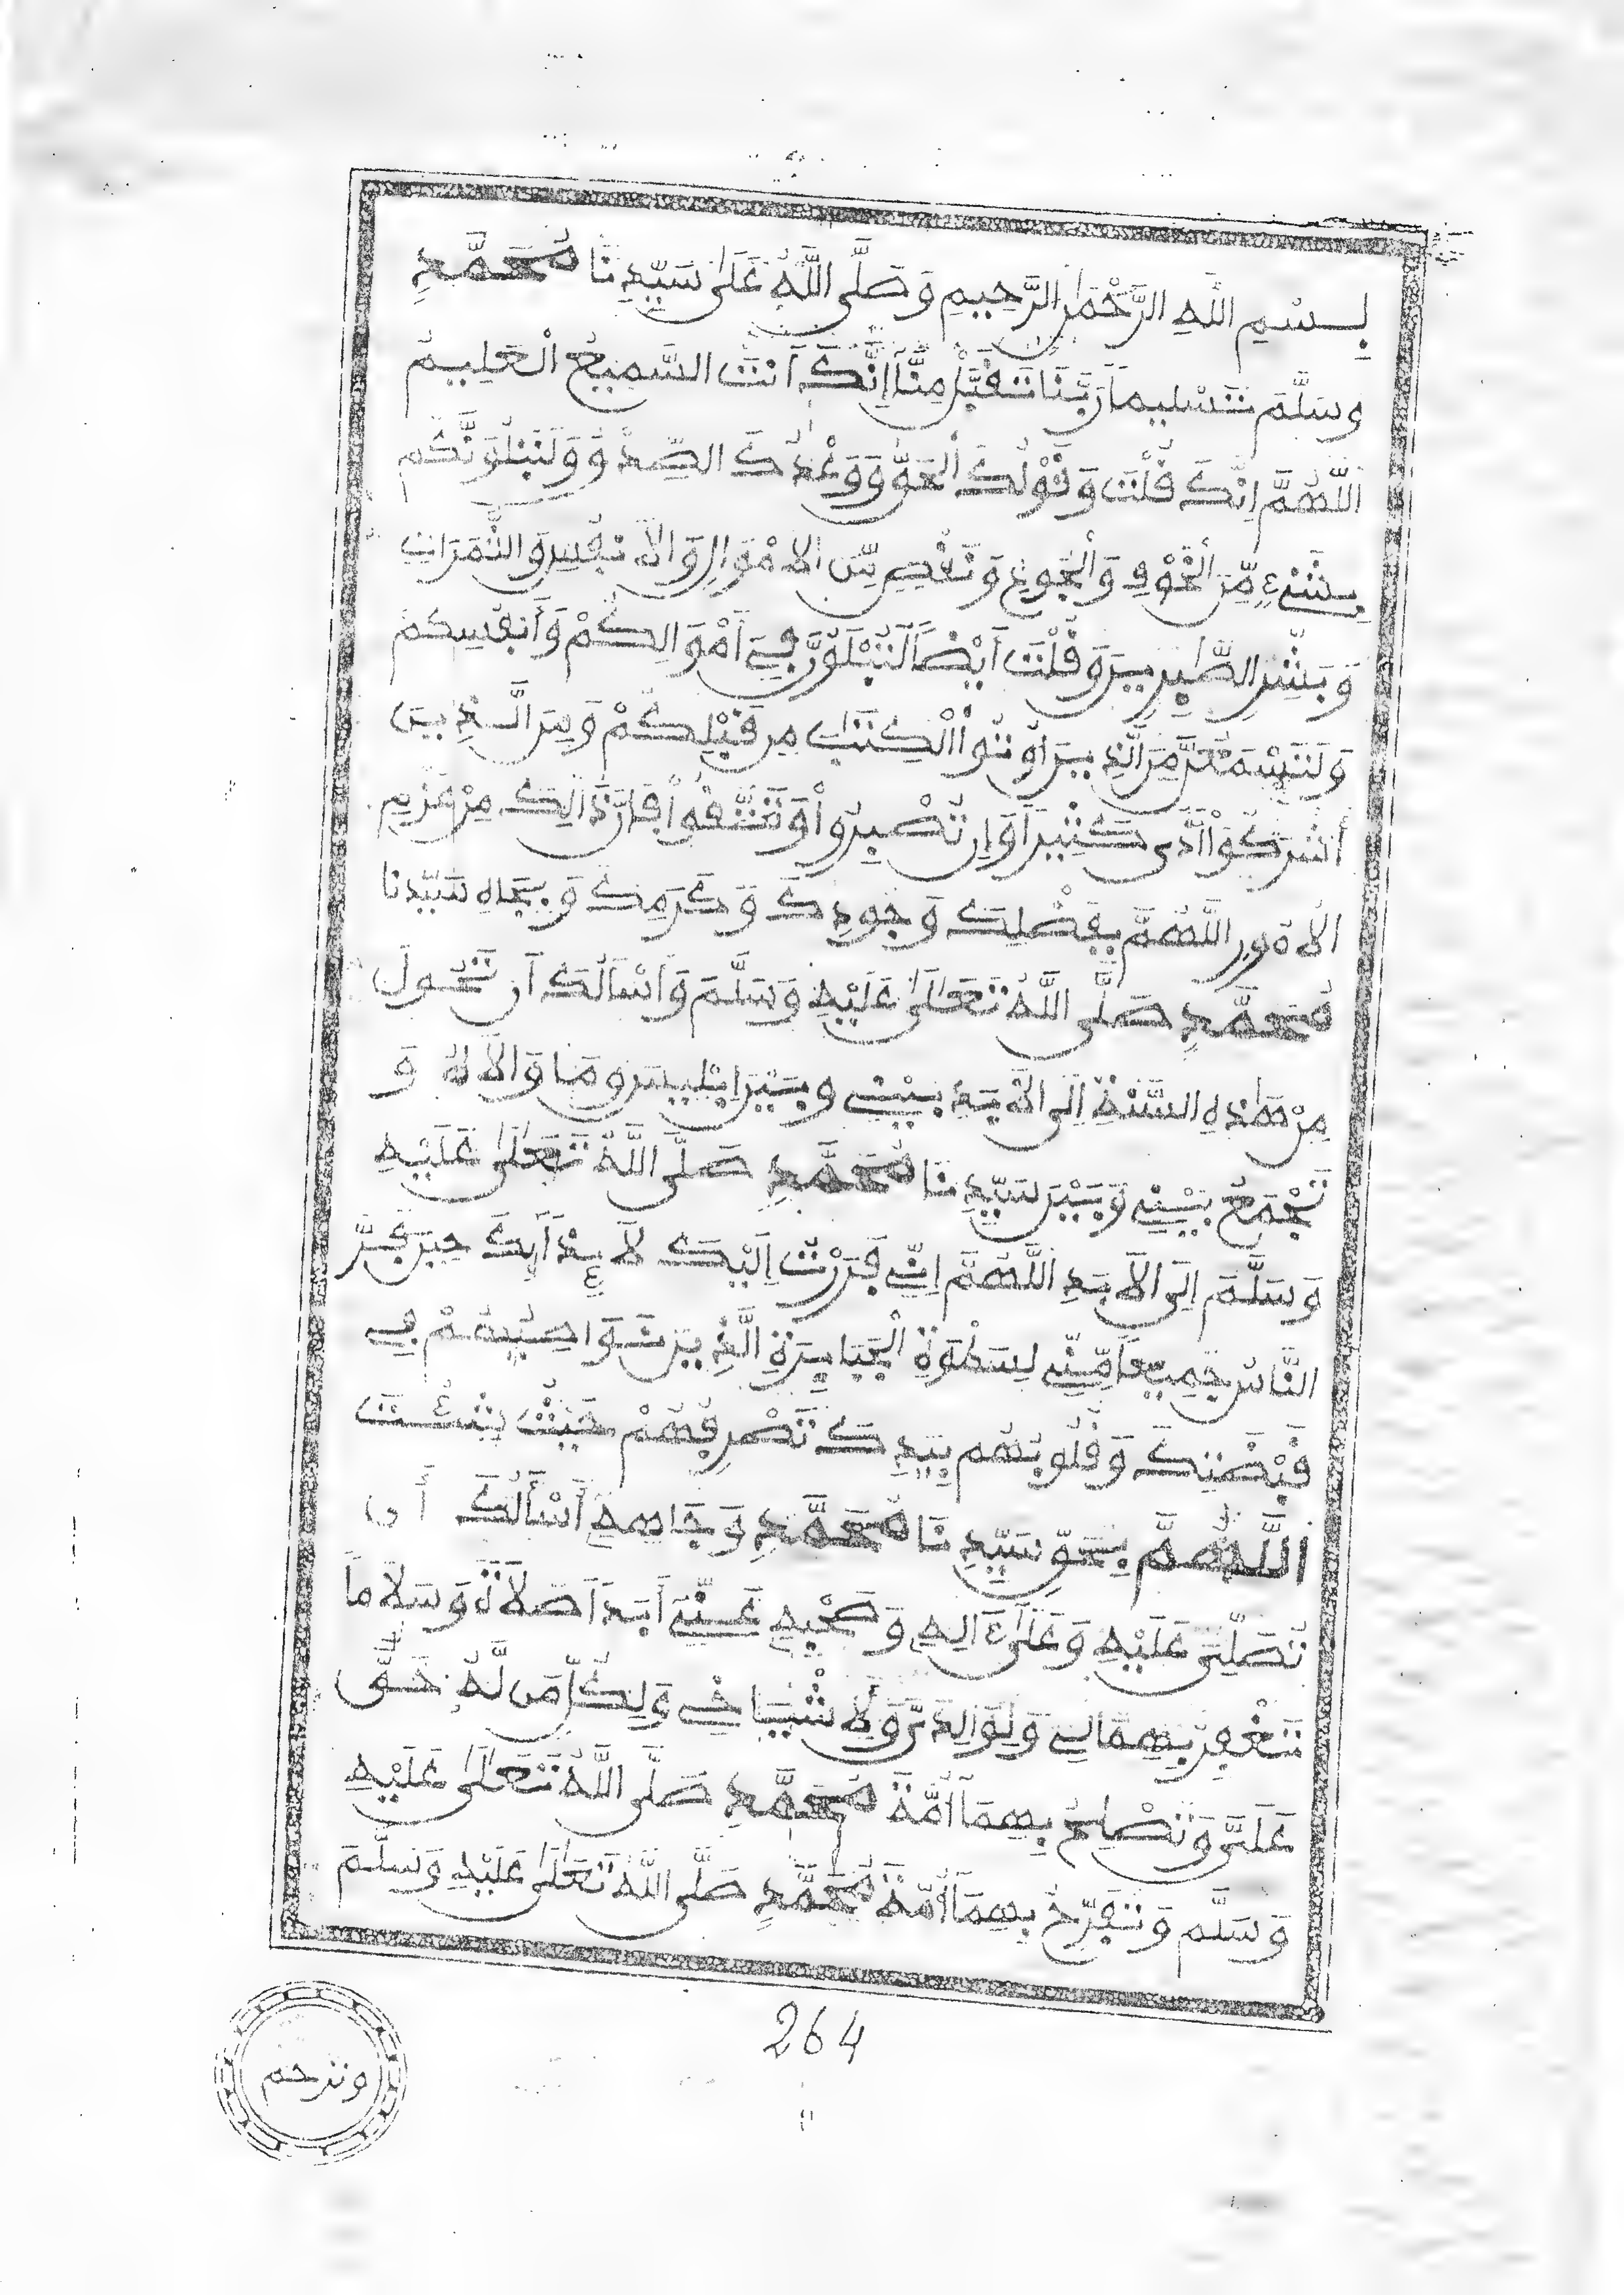 بِسْمِ اللَّهِ الرَّحْمَٰنِ الرَّحِيمِ وَصَلَّى اللَّهُ عَلَىٰ سَيِّدِنَا مُحَمَّدٍ
وَسَلَّمَ تَسْلِيماً رَبَّنَا تَقَبَّلْ مِنَّا إِنَّكَ أَنتَ السَّمِيعُ الْعَلِيمُ
اللَّهُمَّ إِنَّكَ قُلْتَ وَقَوْلُكَ الْحَقُّ وَوَعْدُكَ الصِّدْقُ وَلَنَبْلُوَنَّكُم
بِشَيْءٍ مِّنَ الْخَوْفِ وَالْجُوعِ وَنَقْصٍ مِّنَ الْأَمْوَالِ وَالْأَنفُسِ وَالثَّمَرَاتِ
وَبَشِّرِ الصَّٰبِرِينَ وَقُلْتَ أَيْضاً لَتُبْلَوُنَّ فِي أَمْوَالِكُمْ وَأَنفُسِكُمْ
وَلَتَسْمَعُنَّ مِنَ الَّذِينَ أُوتُوا الْكِتَٰبَ مِن قَبْلِكُمْ وَمِنَ الَّذِينَ
أَشْرَكُوا أَذًى كَثِيراً وَإِن تَصْبِرُوا وَتَتَّقُوا فَإِنَّ ذَٰلِكَ مِنْ عَزْمِ
الْأُمُورِ اللَّهُمَّ بِفَضْلِكَ وَجُودِكَ وَكَرَمِكَ وَبِجَاهِ سَيِّدِنَا
مُحَمَّدٍ صَلَّى اللَّهُ تَعَالَىٰ عَلَيْهِ وَسَلَّمَ وَأَسْأَلُكَ أَن تَحُولَ
مِنْ هَٰذِهِ السَّنَةِ إِلَى الْأَبَدِ بَيْنِي وَبَيْنَ إِبْلِيسَ وَمَا وَالَاهُ وَ
تَجْمَعَ بَيْنِي وَبَيْنَ سَيِّدِنَا مُحَمَّدٍ صَلَّى اللَّهُ تَعَالَىٰ عَلَيْهِ
وَسَلَّمَ إِلَى الْأَبَدِ اللَّهُمَّ إِنِّي فَرَرْتُ إِلَيْكَ لَائِذاً بِكَ حِينَ فَرَّ
النَّاسُ جَمِيعاً مِّنِّي لِسَطْوَةِ الْجَبَابِرَةِ الَّذِينَ نَوَاصِيهِمْ فِي
قَبْضَتِكَ وَقُلُوبُهُم بِيَدِكَ تَصْرِفُهُمْ حَيْثُ شِئْتَ
اللَّهُمَّ بِحَقِّ سَيِّدِنَا مُحَمَّدٍ وَجَاهِهِ أَسْأَلُكَ أَن
تُصَلِّيَ عَلَيْهِ وَعَلَىٰ ءَالِهِ وَصَحْبِهِ عَنِّي أَبَداً صَلَاةً وَسَلَاماً
تَغْفِرُ بِهِمَا لِي وَلِوَالِدَيَّ وَلِأَشْيَاخِي وَلِكُلِّ مَن لَّهُ حَقٌّ
عَلَيَّ وَتُصْلِحُ بِهِمَا أُمَّةَ مُحَمَّدٍ صَلَّى اللَّهُ تَعَالَىٰ عَلَيْهِ
وَسَلَّم وَتُفَرِّحُ بِهِمَا أُمَّةَ مُحَمَّدٍ صَلَّى اللَّهُ تَعَالَىٰ عَلَيْهِ وَسَلَّمَ
264
وترحم